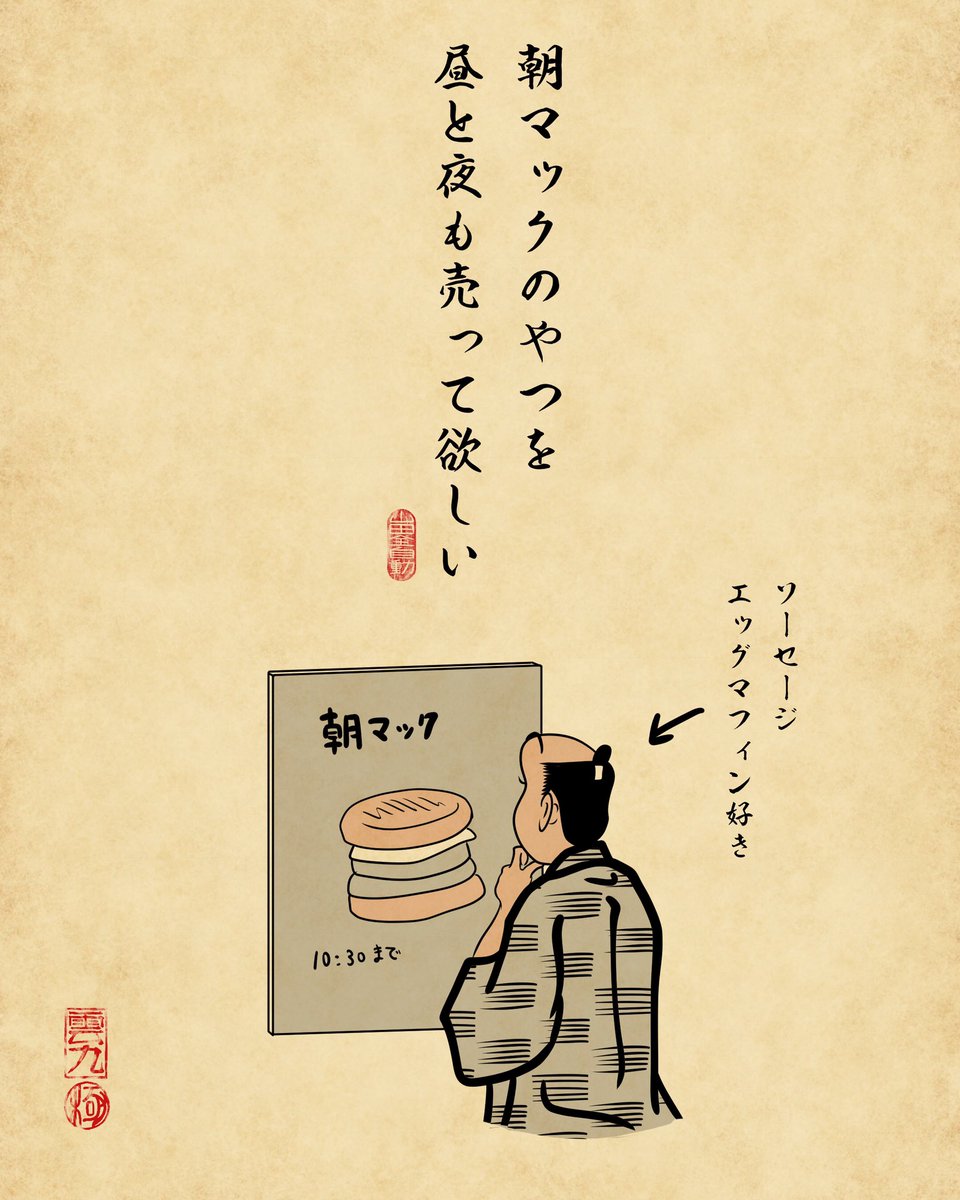 朝マックのやつを
昼と夜も売って欲しい
ソーセージ
エッグマフィン好き
朝マック
10:30まで